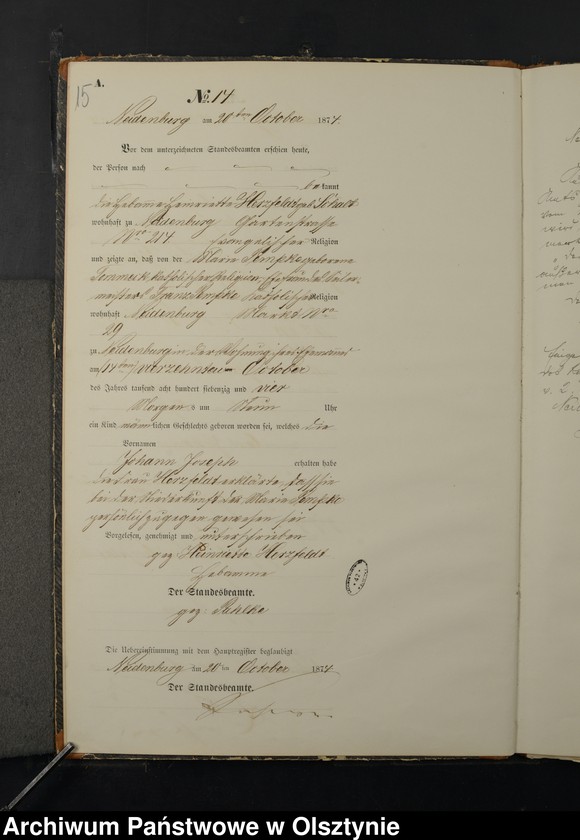 15
A.
No. 17
Neidenburg am 20ten October 1874.
Vor dem unterzeichneten Standesbeamten erschien heute,
der Person nach
bekannt
die Hebamme Henriette Herzfeldt geb.
wohnhaft zu Neidenburg Gartenstrasse
No. 217 evangelischer Religion
und zeigte an, daß von der Maria geborene
katholischer Religion, Ehefrau des
Franz katholischer Religion
wohnhaft Neidenburg Markt No.
29
zu Neidenburg in der Wohnung ihres Ehemanns
am (14ten) vierzehnten October
des Jahres tausend acht hundert siebenzig und vier
Morgens um neun Uhr
ein Kind männlichen Geschlechts geboren worden sei, welches die
Vornamen
Johann Joseph erhalten habe
die Frau Herzfeldt erklärte, dass sie
bei der Niederkunft der Maria
persönlich zugegen gewesen sei
Vorgelesen, genehmigt und unterschrieben
gez. Henriette Herzfeldt
Hebamme
Der Standesbeamte.
gez. Pahlke
Die Uebereinstimmung mit dem Hauptregister beglaubigt
Neidenburg am 20ten October 1874
Der Standesbeamte.
Archiwum Państwowe w Olsztynie